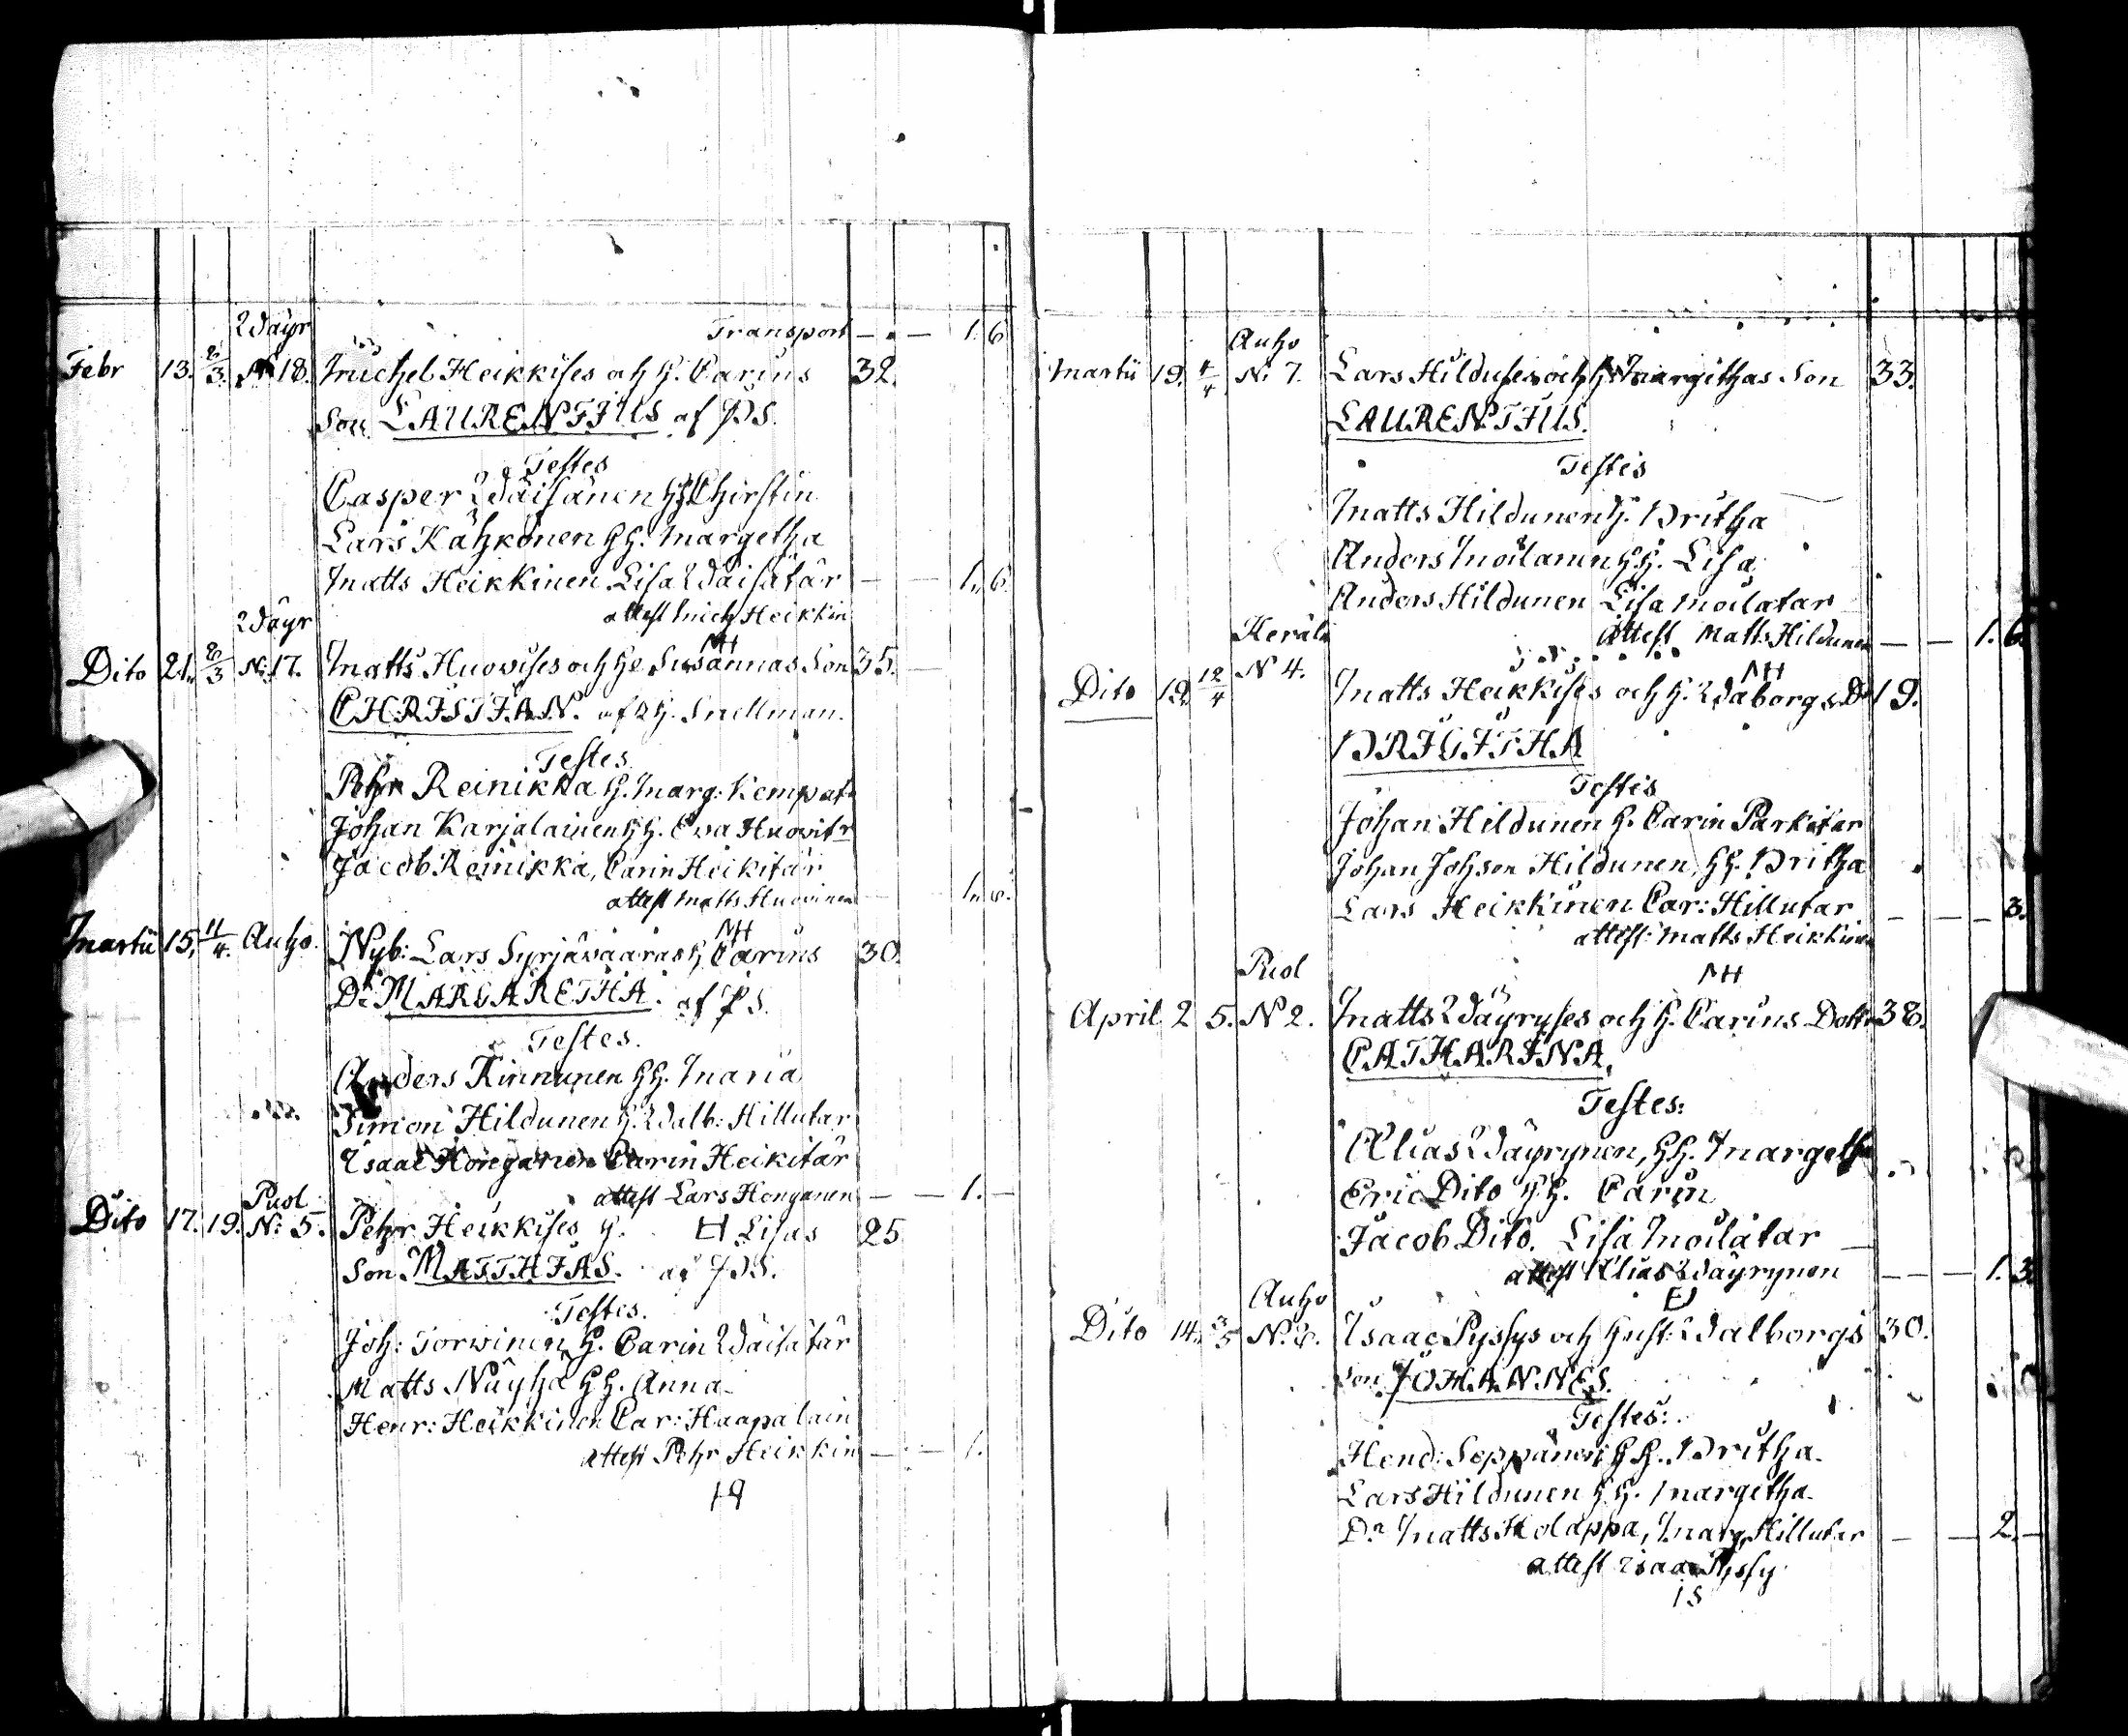 Transport — . — 1. 6
Wäyr
Febr 13. 2/3. N 18. Michel Heikkises och H. Carins 32.
Son LAURENTIUS af P.S.
Testes
Casper Wäisänen HH. Chirstin
Lars Kähkönen HH. Margetha
Matts Heikkinen Lisa Wäisätär — — 1. 6.
attest Mich Heikkin
Wäyr
NH
Dito 21. 2/3 N: 17. Matts Huovises och H. Susannas Son 35. —
CHRISTIAN. af H. Snellman.
Testes
Pehr Reinikka H. Marg: Kempat:
Johan Karjalainen HH. Eva Huovitr
Jacob Reinikka, Carin Heikitär
attest Matts Huovinen — 1. 6.
NH
Martii 15. 11/4. Auho. Nyb: Lars Syrjäwaaras H. Carins 30.
Dr MARGARETHA. af P.S.
Testes.
Anders Kinnunen HH. Maria
Simon Hildunen H. Walb: Hillutar
Isaac Honganen Carin Heikitär
attest Lars Honganen — — 1. —
Puol
Dito 17. 19. N: 5. Pehr Heikkises H. Lisas 25
Son. MATTHIAS. af P.S.
Testes.
Joh: Torwinen H. Carin Wäisätär
Matts Näyhä HH. Anna
Henr: Heikkinen Car: Haapalain
attest Pehr Heikkin — — 1.
19
Auho
Martii 19. 4/4 N: 7. Lars Hilduses och H. Margethas Son 33.
LAURENTIUS.
Testes
Matts Hildunen H. Britha
Anders Moilanen HH. Lisa
Anders Hildunen Lisa Moilatar
attest Matts Hildunen — — 1. 6.
Heräl
NH
Dito 12 12/4 N 4. Matts Heikkises och H. Waborgs Dr 19.
BRIGITHA
Testes
Johan Hildunen H. Carin Parkitar
Johan Johson Hildunen, HH. Britha
Lars Heikkinen Car: Hillutar — — — 3.
attest: Matts Heikkinen
Puol
NH
April 2 5. N 2. Matts Wäyryses och H. Carins Dottr 38.
CATHARINA.
Testes:
Elias Wäyrynen, HH. Margetha
Eric Dito HH. Carin
Jacob Dito. Lisa Moilatar —
attest Elias Wäyrynen — — — 1. 3.
Auho
Dito 14. 3/5 N: 6. Isaac Pyssys och Hust: Walborgs 30.
Son JOHANNES.
Testes:
Hend: Seppänen HH. Britha.
Lars Hildunen HH. Margetha.
Dr Matts Holappa, Marg Hillutar — — 2. —
attest Isaac Pyssy
15